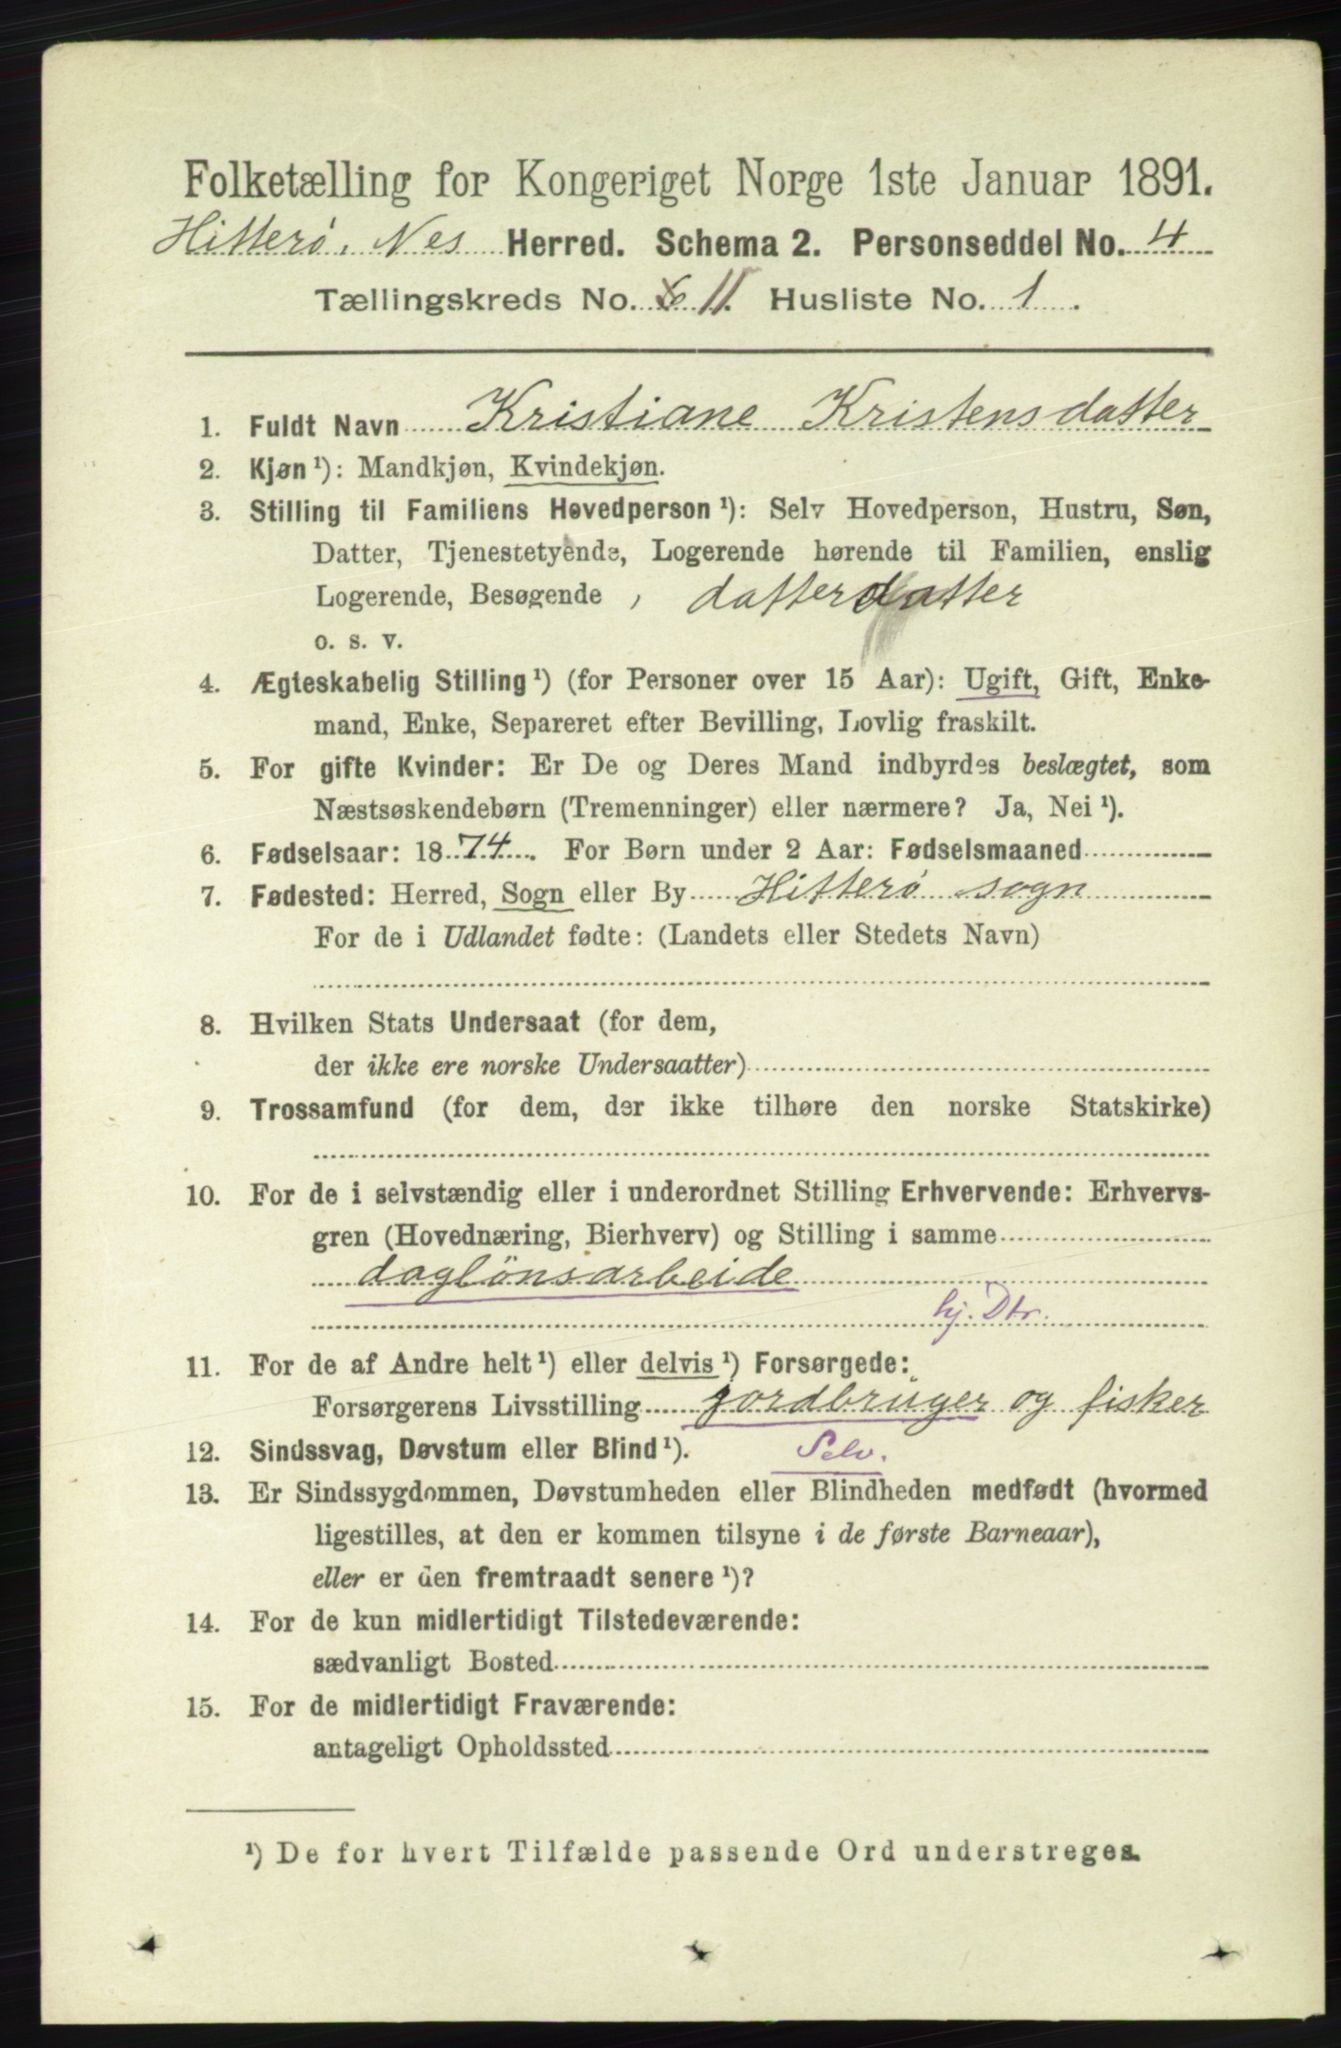 Folketælling for Kongeriget Norge 1ste Januar 1891.
Hitterø, Nes Herred. Schema 2. Personseddel No. 4
Tællingskreds No. 11. Husliste No. 1.
1. Fuldt Navn Kristiane Kristensdatter
2. Kjøn ¹): Mandkjøn, Kvindekjøn.
3. Stilling til Familiens Hovedperson ¹): Selv Hovedperson, Hustru, Søn,
Datter, Tjenestetyende, Logerende hørende til Familien, enslig
Logerende, Besøgende, datterdatter
o. s. v.
4. Ægteskabelig Stilling ¹) (for Personer over 15 Aar): Ugift, Gift, Enke-
mand, Enke, Separeret efter Bevilling, Lovlig fraskilt.
5. For gifte Kvinder: Er De og Deres Mand indbyrdes beslægtet, som
Næstsøskendebørn (Tremenninger) eller nærmere? Ja, Nei ¹).
6. Fødselsaar: 1874. For Børn under 2 Aar: Fødselsmaaned
7. Fødested: Herred, Sogn eller By Hitterø sogn
For de i Udlandet fødte: (Landets eller Stedets Navn)
8. Hvilken Stats Undersaat (for dem,
der ikke ere norske Undersaatter)
9. Trossamfund (for dem, der ikke tilhøre den norske Statskirke)
10. For de i selvstændig eller i underordnet Stilling Erhvervende: Erhvervs-
gren (Hovednæring, Bierhverv) og Stilling i samme
daglönsarbeide
hj. Dtr.
11. For de af Andre helt ¹) eller delvis ¹) Forsørgede:
Forsørgerens Livsstilling jordbrüger og fisker
12. Sindssvag, Døvstum eller Blind ¹). Selv.
13. Er Sindssygdommen, Døvstumheden eller Blindheden medfødt (hvormed
ligestilles, at den er kommen tilsyne i de første Barneaar),
eller er den fremtraadt senere ¹)?
14. For de kun midlertidigt Tilstedeværende:
sædvanligt Bosted
15. For de midlertidigt Fraværende:
antageligt Opholdssted
¹) De for hvert Tilfælde passende Ord understreges.